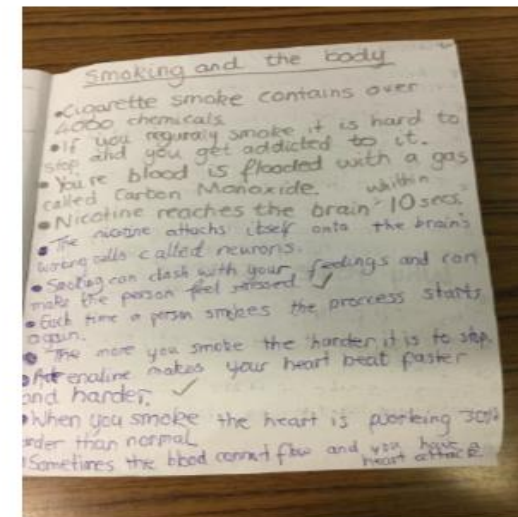 Smoking and the body
•Cigarette smoke contains over
4000 chemicals
•If you reguraly smoke it is hard to
stop and you get addicted to it.
•You're blood is flooded with a gas
called Carbon Monoxide. Whithin
•Nicotine reaches the brain 10 secs
•The nicotine attachs itself onto the brain's
working cells called neurons.
•Smoking can clash with your feelings and can
make the person feel relaxed
•Each time a person smokes the process starts
again.
•The more you smoke the harder it is to stop.
•Adrenaline makes your heart beat faster
and harder.
•When you smoke the heart is working 30%
harder than normal
•Sometimes the blood connot flow and you have a
heart attack